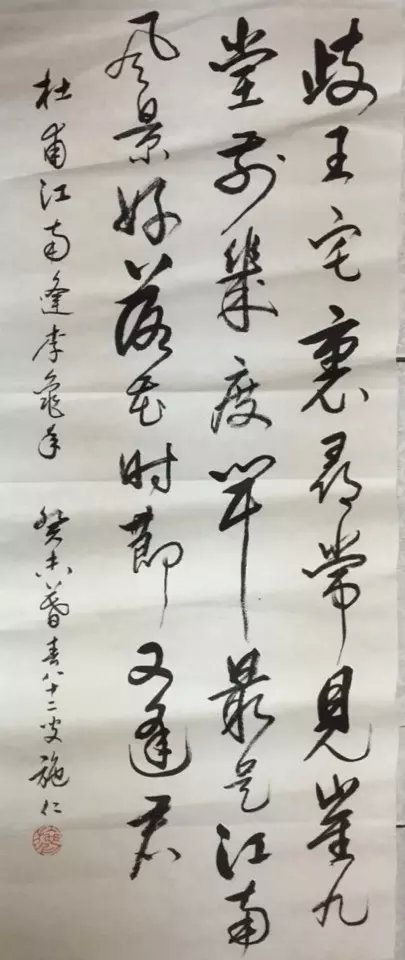 歧王宅裏尋常見崔九
堂前幾度聞最是江南
風景好落花時節又逢君
杜甫江南逢李龜年 癸未暮春八十二叟施仁